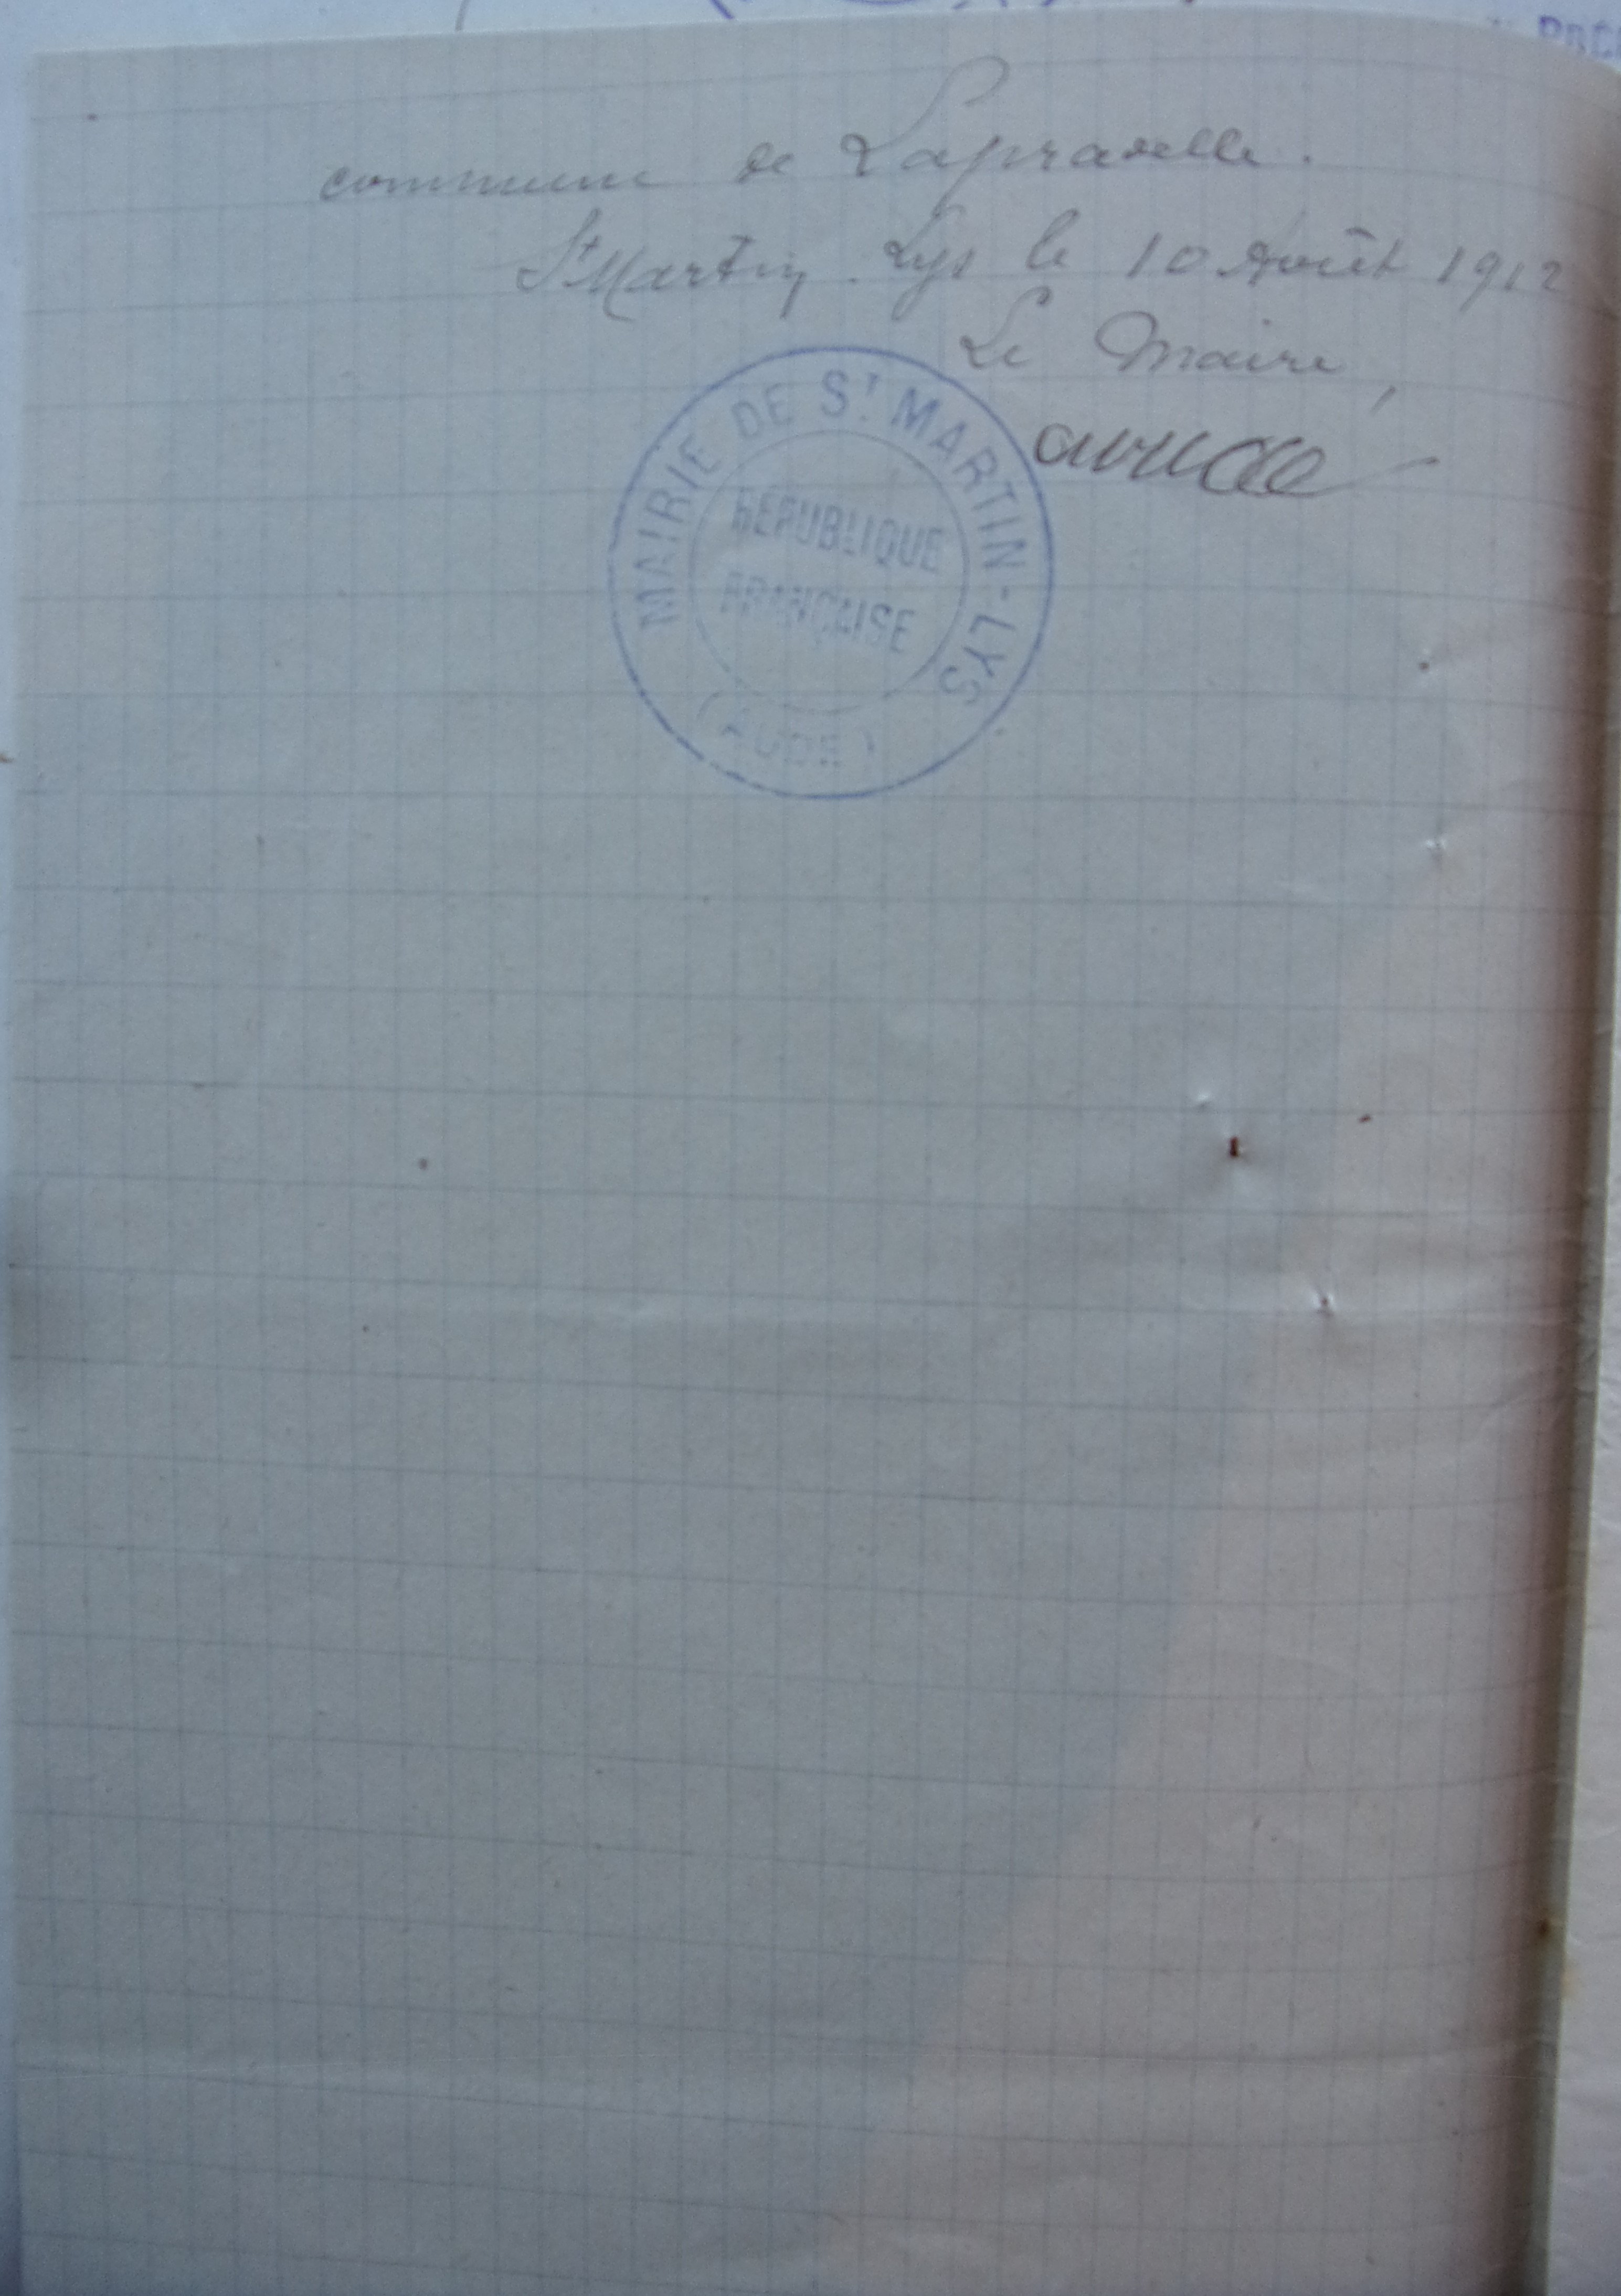 commune de Lapradelle.
St Martin-Lys le 10 Août 1912
Le Maire,
MAIRIE DE ST MARTIN-LYS
REPUBLIQUE
FRANÇAISE
(AUDE)